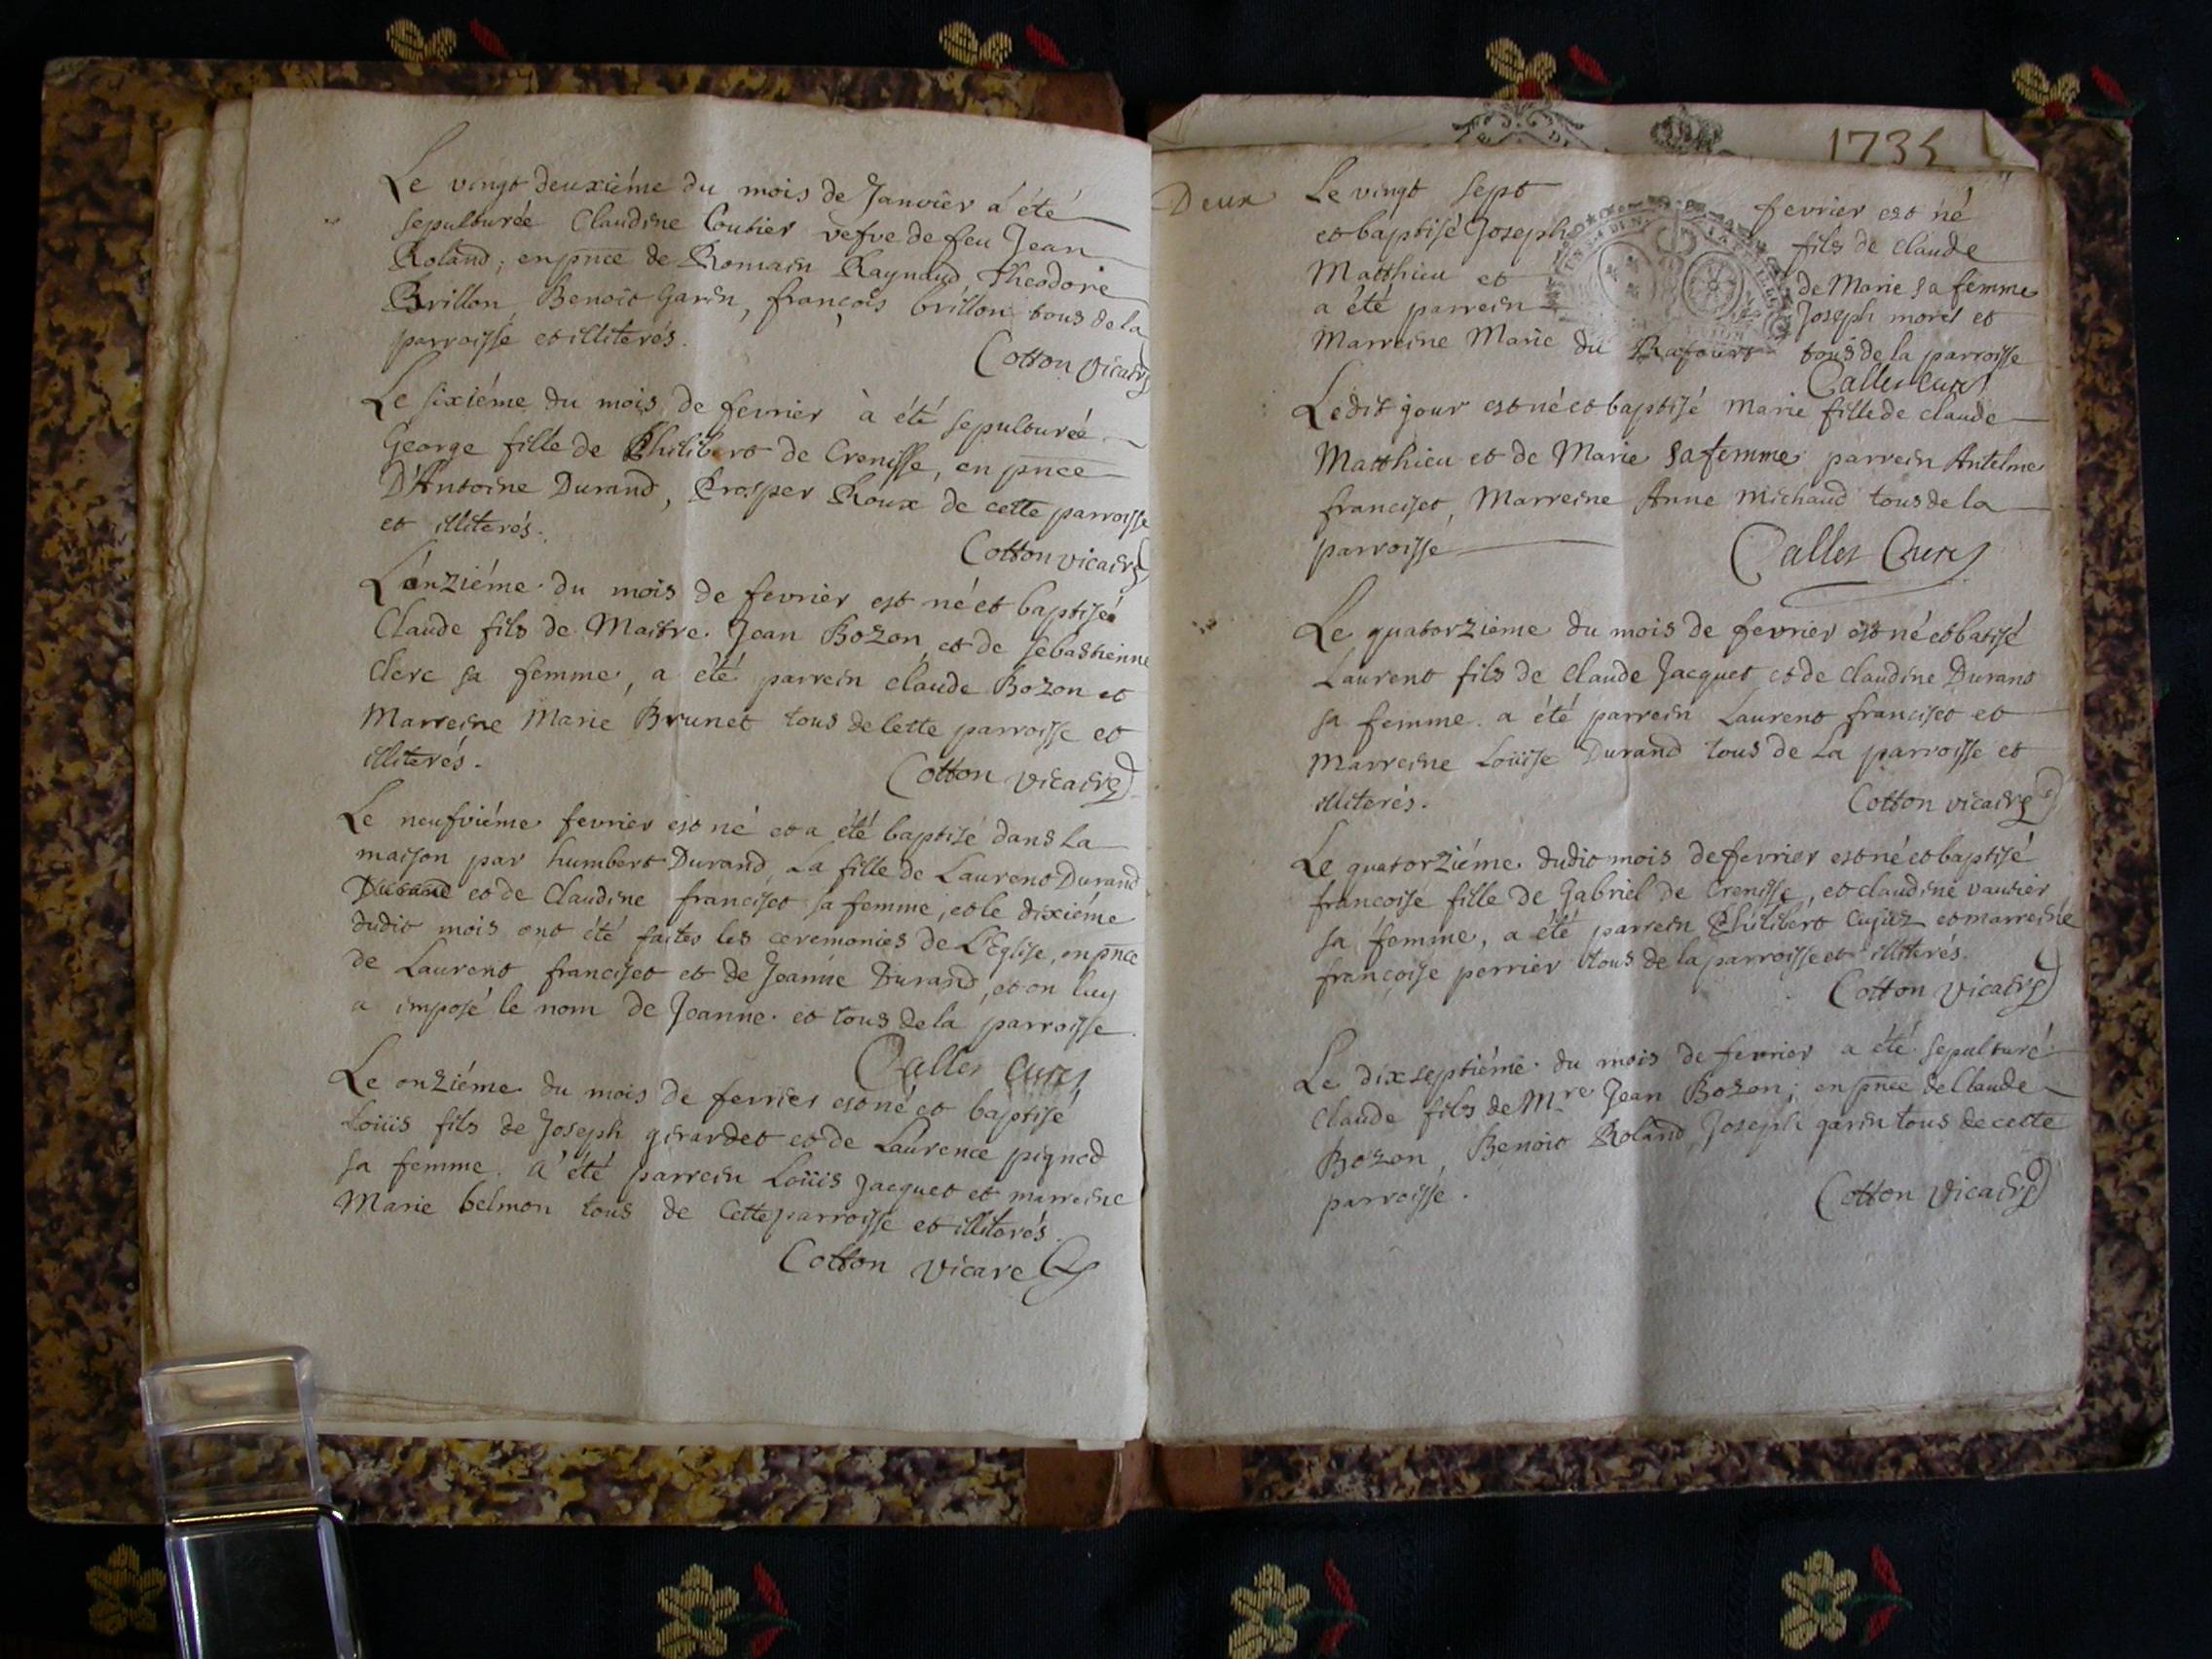 Le vingt deuxiéme du mois de Janvier á été
sepulturée Claudine Coutier vefve de feu Jean
Roland; en pnce de Romain Raynaud, Theodore
Brillon, Benoit Garin, françois brillon tous de la
parroisse et illiterés.
Cotton vicaire
Le sixiéme du mois de fevrier à été sepulturée
George fille de Philibert de Crenisse, en pnce
D'Antoine Durand, Prosper Roux de cette parroisse
et illiterés.
Cotton vicaire
L'onziéme du mois de fevrier est né et baptisé
Claude fils de Maitre Jean Bozon, et de sebastienne
Clerc sa femme, a été parrein claude Bozon et
Marreine Marie Brunet tous de Cette parroisse et
illiterés.
Cotton vicaire
Le neufviéme fevrier est né et a été baptisé dans la
maison par humbert Durand, La fille de Laurent Durand
et de Claudine franciset sa femme, et le dixiéme
dudit mois ont été faites les ceremonies de L'Eglise, en pnce
de Laurent franciset et de Jeanne Durand, et on luy
a imposé le nom de Jeanne. et tous de la parroisse.
Calles curé
Le onziéme du mois de fevrier est né et baptisé
Loüis fils de Joseph girardet et de Laurence pignod
sa femme. a été parrein Loüis Jacquet et marreine
Marie belmon tous de Cette parroisse et illiterés.
Cotton vicare
1735
Deux
Le vingt sept fevrier est né
et baptisé Joseph fils de claude
Matthieu et de Marie sa femme
a été parrein Joseph morel et
Marreine Marie du tous de la parroisse
Calles curé
Ledit jour est né et baptisé marie fille de claude
Matthieu et de Marie sa femme parrein Antelme
franciset, Marreine Anne Michaud tous de la
parroisse
Calles Curé
Le quatorzieme du mois de fevrier est né et batisé
Laurent fils de claude Jacquet et de claudine Durand
sa femme. a été parrein Laurent franciset et
Marreine Loüise Durand tous de La parroisse et
illiterés.
Cotton vicaire
Le quatorziéme dudit mois de fevrier est né et baptisé
francoise fille de Gabriel de Crenisse, et claudine vautier
sa femme, a été parrein Philibert et marreine
françoise perrier tous de la parroisse et illiterés.
Cotton vicaire
Le dix septiéme du mois de fevrier a été sepulturé
Claude fils de Mre Jean Bozon; en pnce de Claude
Bozon, Benoit Roland, Joseph garin tous de cette
parroisse.
Cotton vicaire